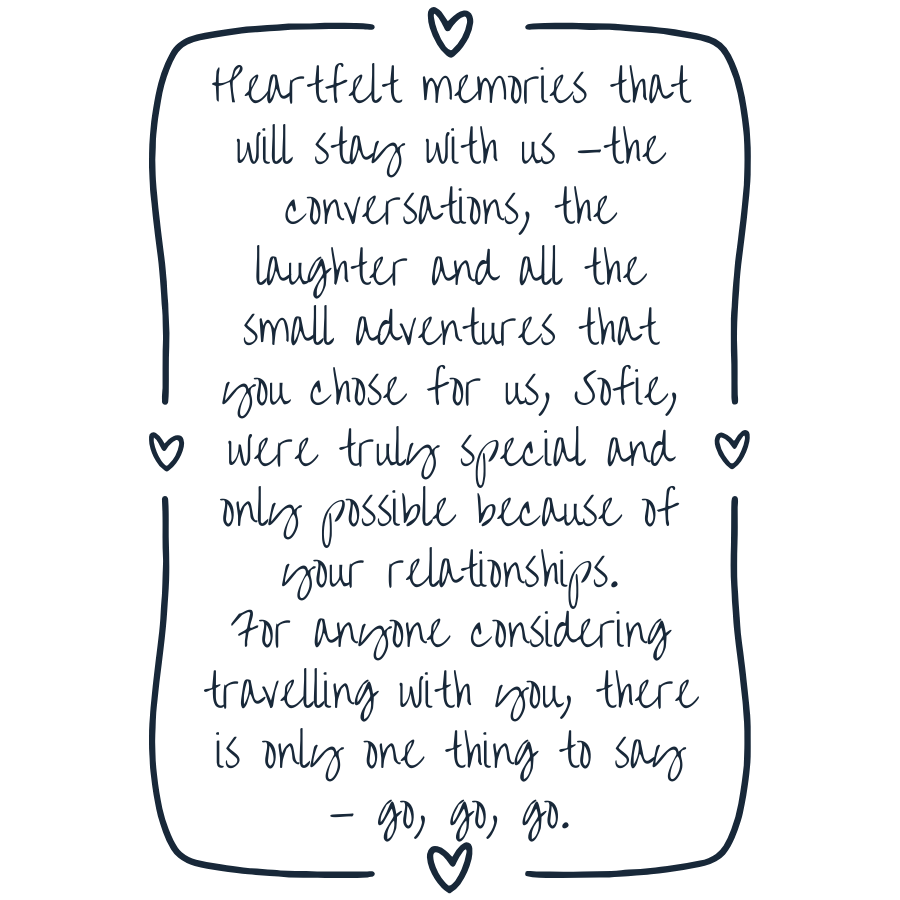 Heartfelt memories that
will stay with us –the
conversations, the
laughter and all the
small adventures that
you chose for us, Sofie,
were truly special and
only possible because of
your relationships.
For anyone considering
travelling with you, there
is only one thing to say
– go, go, go.